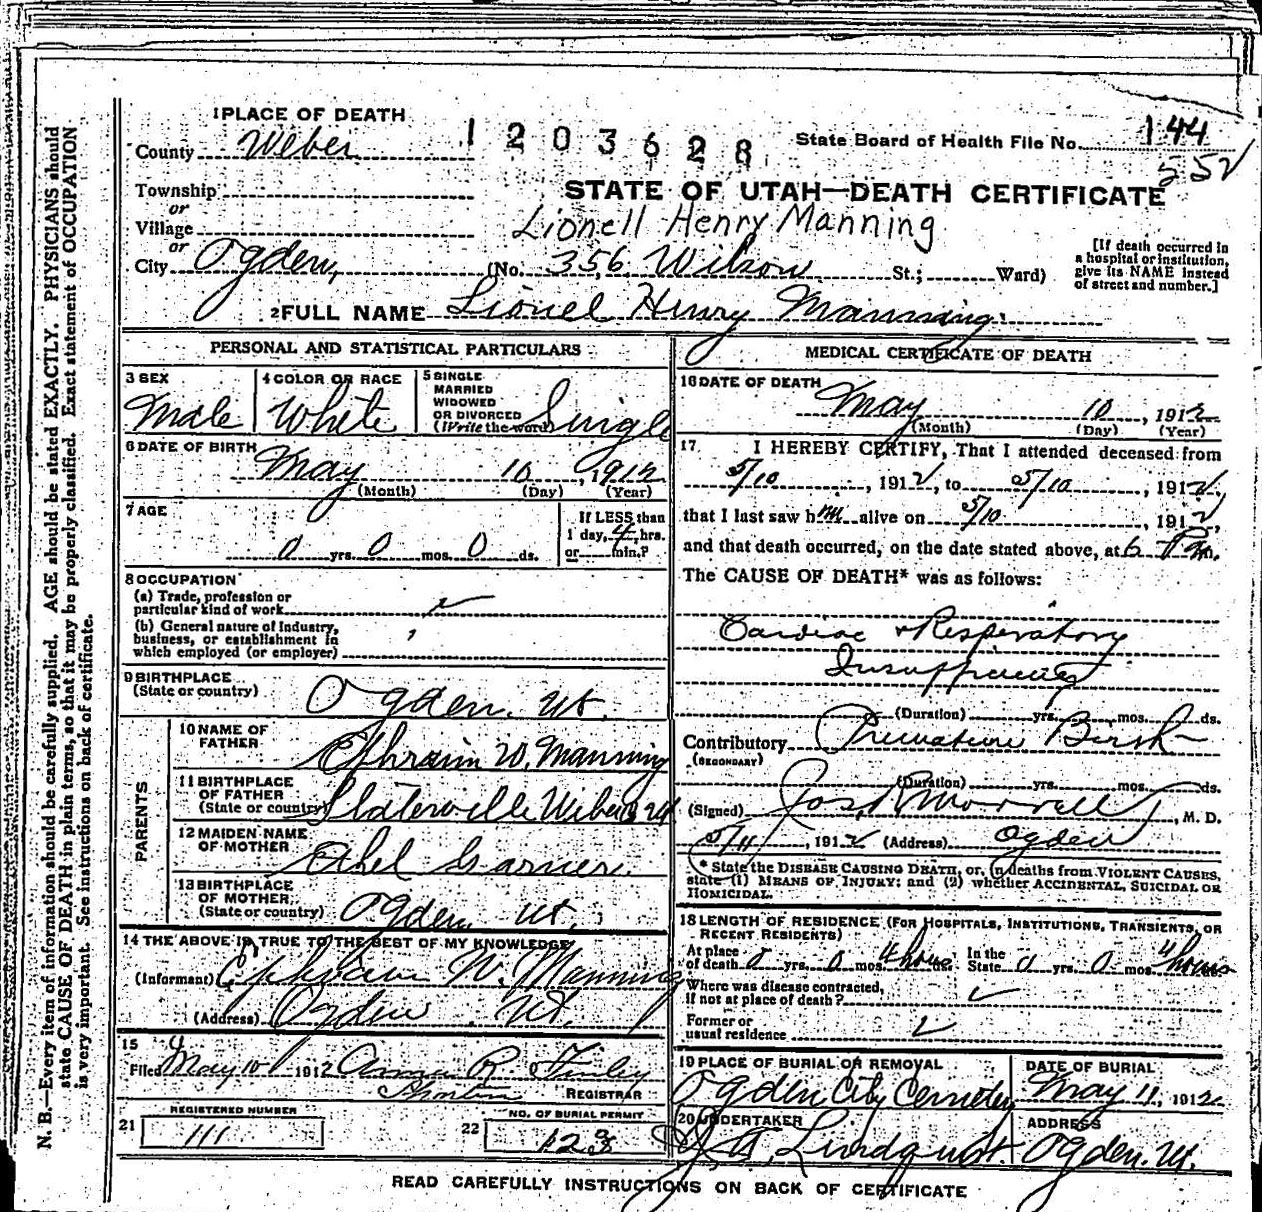 1 PLACE OF DEATH
County Weber
1203628
State Board of Health File No. 144
552
Township
or
Village
or
City Ogden,
STATE OF UTAH—DEATH CERTIFICATE
Lionell Henry Manning
(No. 356 Wilson St.; Ward)
[If death occurred in
a hospital or institution,
give its NAME instead
of street and number.]
2 FULL NAME Lionel Henry Manning.
PERSONAL AND STATISTICAL PARTICULARS
3 SEX
Male
4 COLOR OR RACE
White
5 SINGLE
MARRIED
WIDOWED
OR DIVORCED
(Write the word)
Single
6 DATE OF BIRTH
May 10, 1912
(Month) (Day) (Year)
7 AGE
0 yrs. 0 mos. 0 ds.
If LESS than
1 day, 4 hrs.
or min.?
8 OCCUPATION
(a) Trade, profession or
particular kind of work
(b) General nature of Industry,
business, or establishment in
which employed (or employer)
9 BIRTHPLACE
(State or country)
Ogden. Ut.
PARENTS
10 NAME OF
FATHER
Ephraim W. Manning
11 BIRTHPLACE
OF FATHER
(State or country)
Slaterville Weber Ut
12 MAIDEN NAME
OF MOTHER
Ethel Garner.
13 BIRTHPLACE
OF MOTHER
(State or country)
Ogden. Ut.
14 THE ABOVE IS TRUE TO THE BEST OF MY KNOWLEDGE
(Informant) Ephraim W. Manning
(Address) Ogden Ut.
15
Filed May 10 1912 R. Finley
REGISTRAR
21
REGISTERED NUMBER
111
22
NO. OF BURIAL PERMIT
123
MEDICAL CERTIFICATE OF DEATH
16 DATE OF DEATH
May 10, 1912
(Month) (Day) (Year)
17 I HEREBY CERTIFY, That I attended deceased from
5/10, 1912, to 5/10, 1912,
that I last saw him alive on 5/10, 1912,
and that death occurred, on the date stated above, at 6 P m.
The CAUSE OF DEATH* was as follows:
Cardiac + Respiratory
Insufficiency
(Duration) yrs. mos. ds.
Contributory Premature Birth
(SECONDARY)
(Duration) yrs. mos. ds.
(Signed) Jos. R Morrell, M. D.
5/11, 1912 (Address) Ogden
* State the DISEASE CAUSING DEATH, or, in deaths from VIOLENT CAUSES,
state (1) MEANS OF INJURY; and (2) whether ACCIDENTAL, SUICIDAL OR
HOMICIDAL.
18 LENGTH OF RESIDENCE (FOR HOSPITALS, INSTITUTIONS, TRANSIENTS, OR
RECENT RESIDENTS)
At place
of death 0 yrs. 0 mos. 4 hours
In the
State 0 yrs. 0 mos. 4 hours
Where was disease contracted,
if not at place of death?
Former or
usual residence
19 PLACE OF BURIAL OR REMOVAL
Ogden City Cemetery
DATE OF BURIAL
May 11, 1912
20 UNDERTAKER
Lindquist.
ADDRESS
Ogden. Ut.
READ CAREFULLY INSTRUCTIONS ON BACK OF CERTIFICATE
N. B.—Every item of information should be carefully supplied. AGE should be stated EXACTLY. PHYSICIANS should
state CAUSE OF DEATH in plain terms, so that it may be properly classified. Exact statement of OCCUPATION
is very important. See instructions on back of certificate.